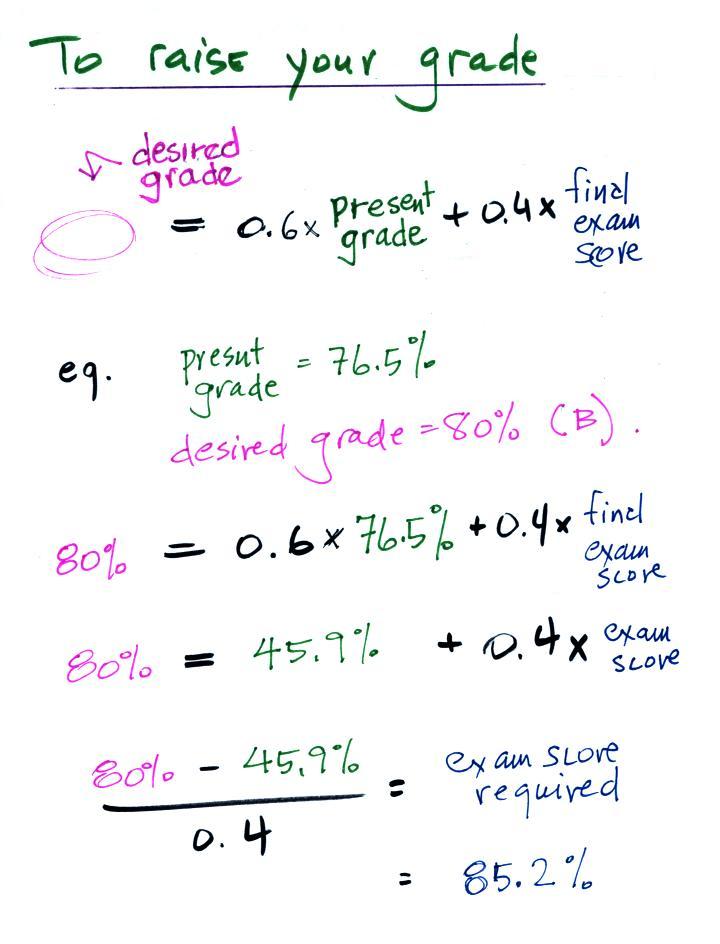 To raise your grade
desired
grade
= 0.6 x present grade + 0.4 x final exam score
eg. present grade = 76.5%
desired grade = 80% (B).
80% = 0.6 x 76.5% + 0.4 x final exam score
80% = 45.9% + 0.4 x exam score
80% - 45.9% = exam score required
0.4
= 85.2%